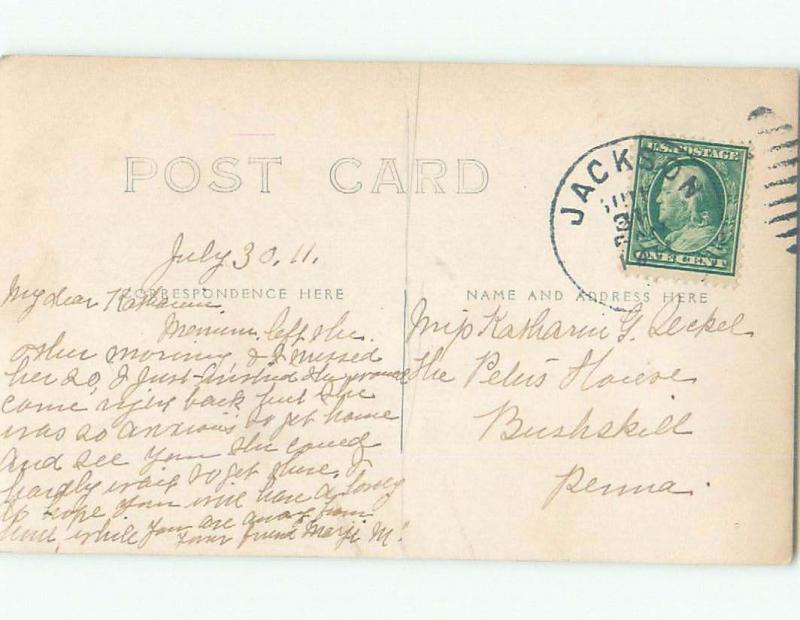 POST CARD
JACKSON
U.S. POSTAGE
ONE CENT
July 30. 11.
CORRESPONDENCE HERE
NAME AND ADDRESS HERE
My dear Katharine.
left the
other morning & I missed
her so, I just wished she would
come right back but she
was so anxious to get home
and see you she could
hardly wait to get there, I
do hope you will have a lovely
time while you are away from
Your friend Marji M.
Miss Katharin G.
The Peters House
Bushskill
Penna.